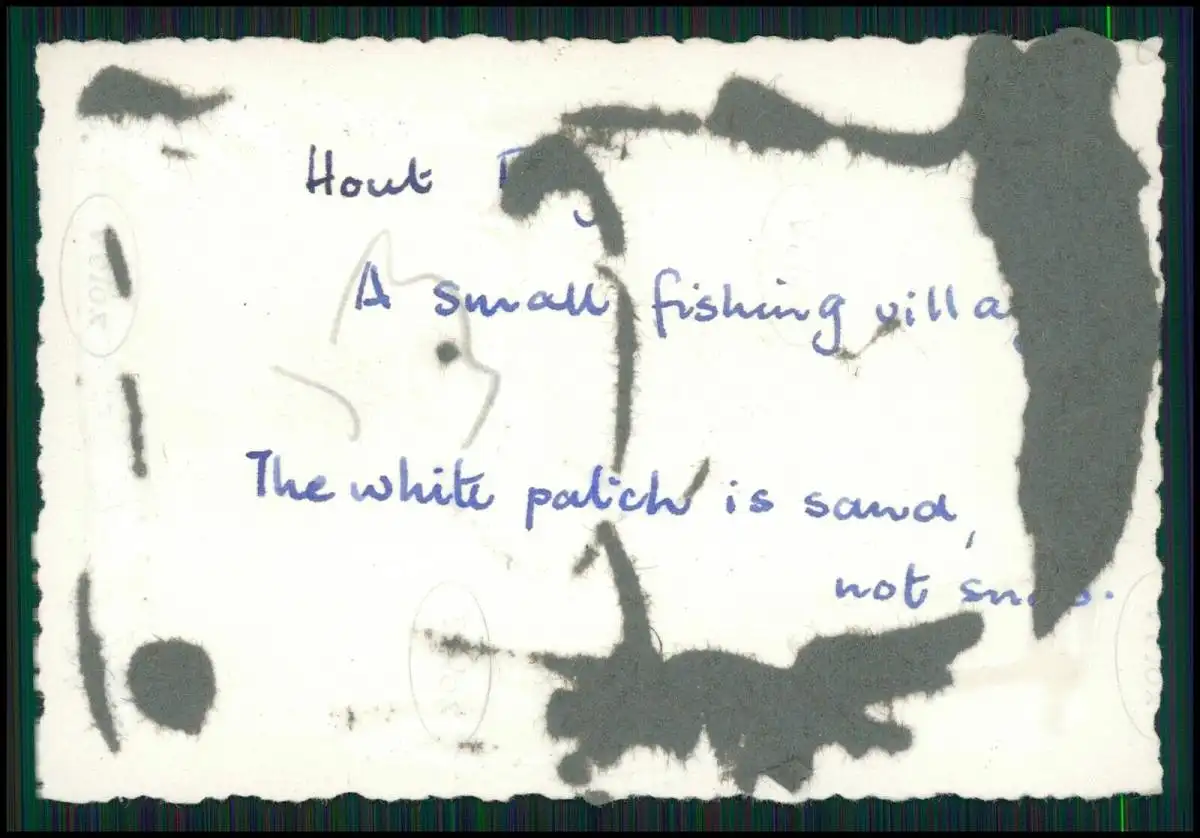 Hout
A small fishing
The white patch is sand,
not